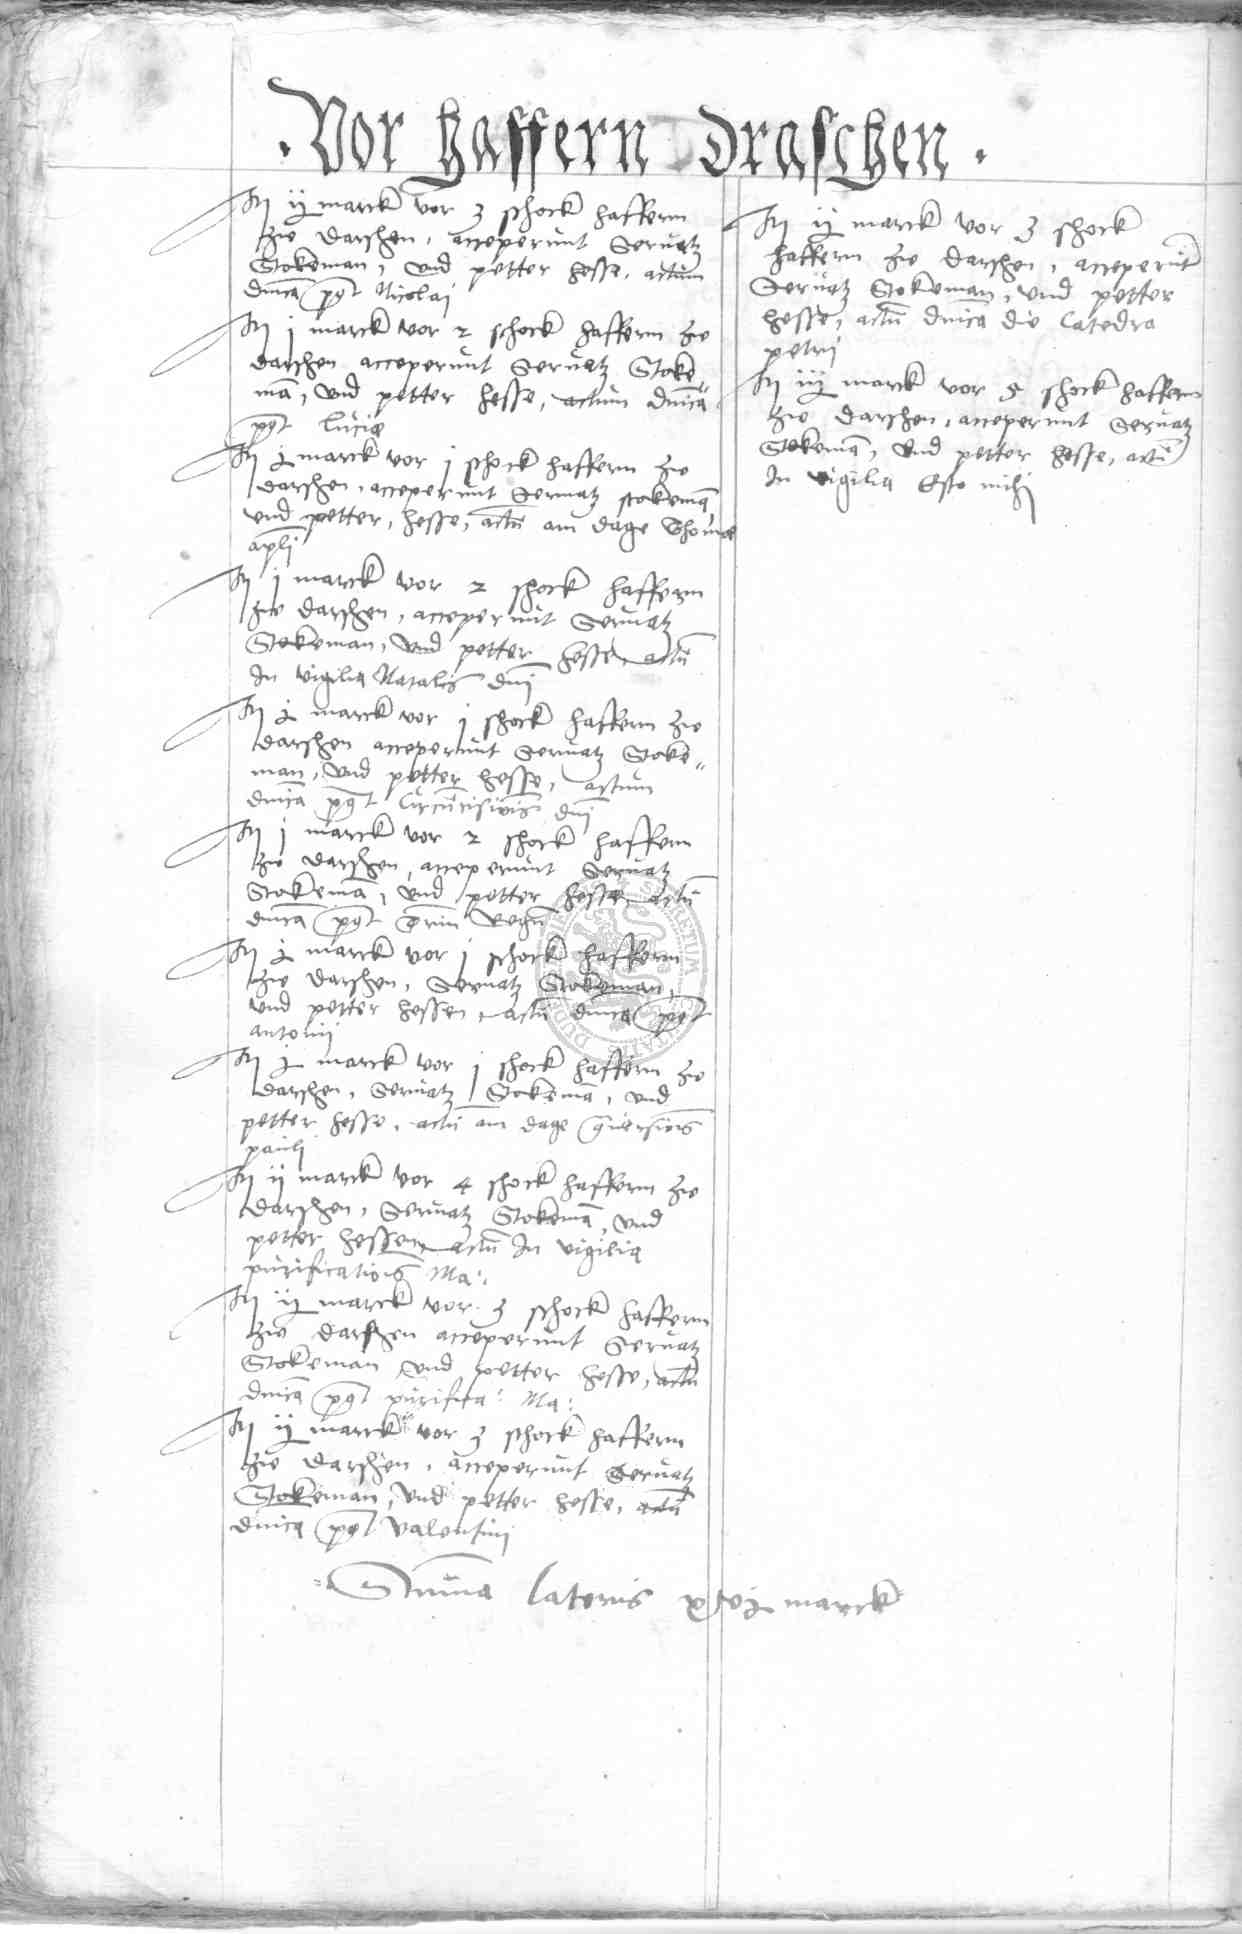 . Vor haffern draschen .
It ij marck vor 3 schock haffern
zie darschen, acceperunt Servatz
Stokeman, und petter hesse, actum
dnica post Nicolai
It j marck vor 2 schock haffern zie
darschen acceperunt Servatz Stoke
mā, und petter hesse, actum dnica
post lucie
It marck vor j schock haffern zie
darschen, acceperunt Servatz stokemā
und petter, hesse, actū am dage Thome
apli
It j marck vor 2 schock haffern
zie darschen, acceperunt Servatz
Stokeman, und petter hesse, actū
In vigilia Natalis dni
It marck vor j schock haffern zie
darschen acceperunt Servatz Stoke„
man, und petter hesse, actum
dnica post Circūcisiōis dni
It j marck vor 2 schock haffern
zie darschen, acceperunt Servatz
Stokemā, und petter hesse, actū
dnica post trim Regū
It marck vor j schock haffern
zie darschen, Servatz Stokeman,
und petter hessen, actū dnica post
antonij
It marck vor j schock haffern zie
darschen, Servatz Stokemā, und
petter hesse, actū am dage ꝯversiōis
pauli
It ij marck vor 4 schock haffern zie
darschen, Servatz Stokemā, und
petter hessen, actū In vigilia
purificatiōis Ma:
It marck vor 3 schock haffern
zie darschen acceperunt Servatz
Stokeman und petter hesse, actū
dnica post purifica: Ma:
It marck vor 3 schock haffern
zie darschen, acceperunt Servatz
Stokeman, und petter hesse, actū
dnica post valentini
It marck vor 3 schock
haffern zie darschen, acceperūt
Servatz Stokeman, und petter
hesse, actū dnica die Catedra
petri
It marck vor 5 schock haffern
zie darschen, acceperunt Servatz
Stokemā, und petter hesse, actū
In vigilia Esto mihi
Summa lateris marck